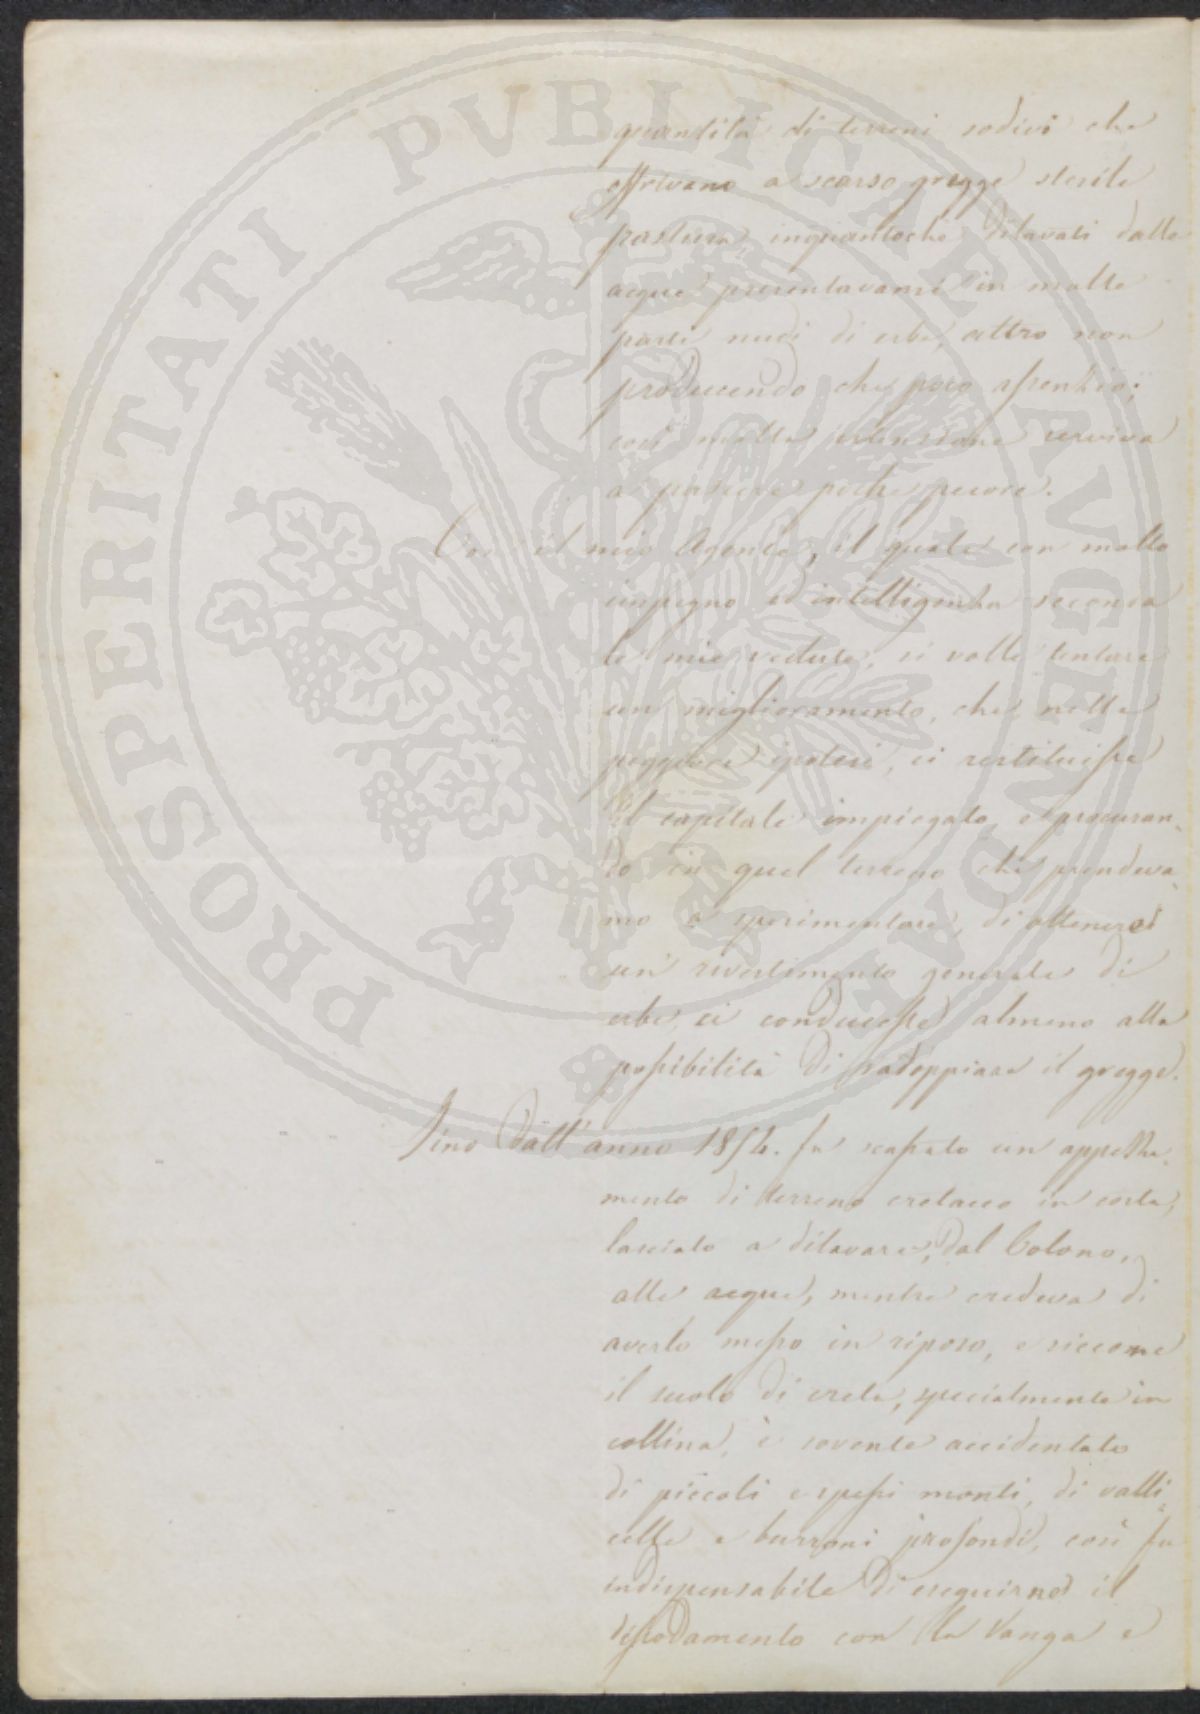 PROSPERITATI PVBLICAE AVGENDAE
quantità di terreni sodivi che
offrivano a scarso gregge sterile
pastura, inquantochè dilavati dalle
acque presentavansi in molte
parti nudi di erbe, altro non
producendo che poco assenzio;
così molta estensione serviva
a pascere poche pecore.
Con il mio Agente, il quale con molto
impegno ed intelligenza seconda
le mie vedute, si volle tentare
un miglioramento, che nella
peggiore ipotesi, ci restituisse
il capitale impiegato, e procuran-
do in quel terreno che prendeva-
mo a sperimentare, di ottenerci
un rivestimento generale di
erbe, ci conducesse almeno alla
possibilità di radoppiare il gregge.
Fino dall'anno 1854. fu scassato un appezza-
mento di terreno cretaceo in costa,
lasciato a dilavare, dal Colono,
alle acque, mentre credeva di
averlo messo in riposo, e siccome
il suolo di creta, specialmente in
collina, è sovente accidentato
di piccoli e spessi monti, di valli-
celle e burroni profondi, così fu
indispensabile di eseguirne il
dissodamento con la vanga e